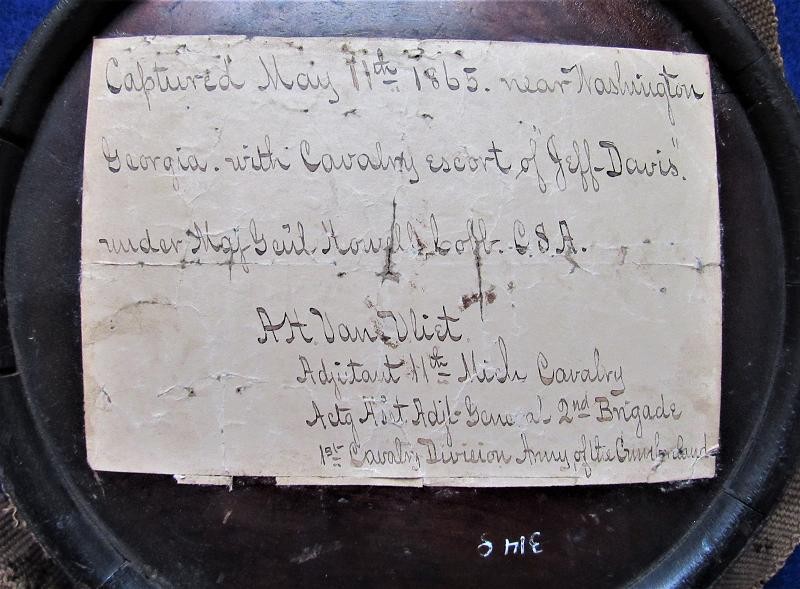 Captured May 11th 1865. near Washington
Georgia. with Cavalry escort of "Jeff-Davis".
under Maj Gen'l Howell Cobb. C.S.A.
A.H. Van Vliet
Adjitant 11th Mich Cavalry
Actg Asst Adjt-General 2nd Brigade
1st Cavalry Division Army of the Cumberland
314